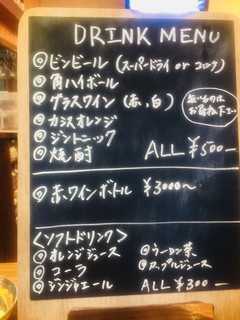 DRINK MENU
◎ビンビール（スーパードライ or コロナ）
◎角ハイボール
◎グラスワイン（赤,白）
無いものは
お尋ね下さい
◎カシスオレンジ
◎ジントニック
◎焼酎
ALL ¥500−
◎赤ワインボトル ¥3000〜
〈ソフトドリンク〉
◎オレンジジュース
◎コーラ
◎ジンジャエール
◎ウーロン茶
◎アップルジュース
ALL ¥300−